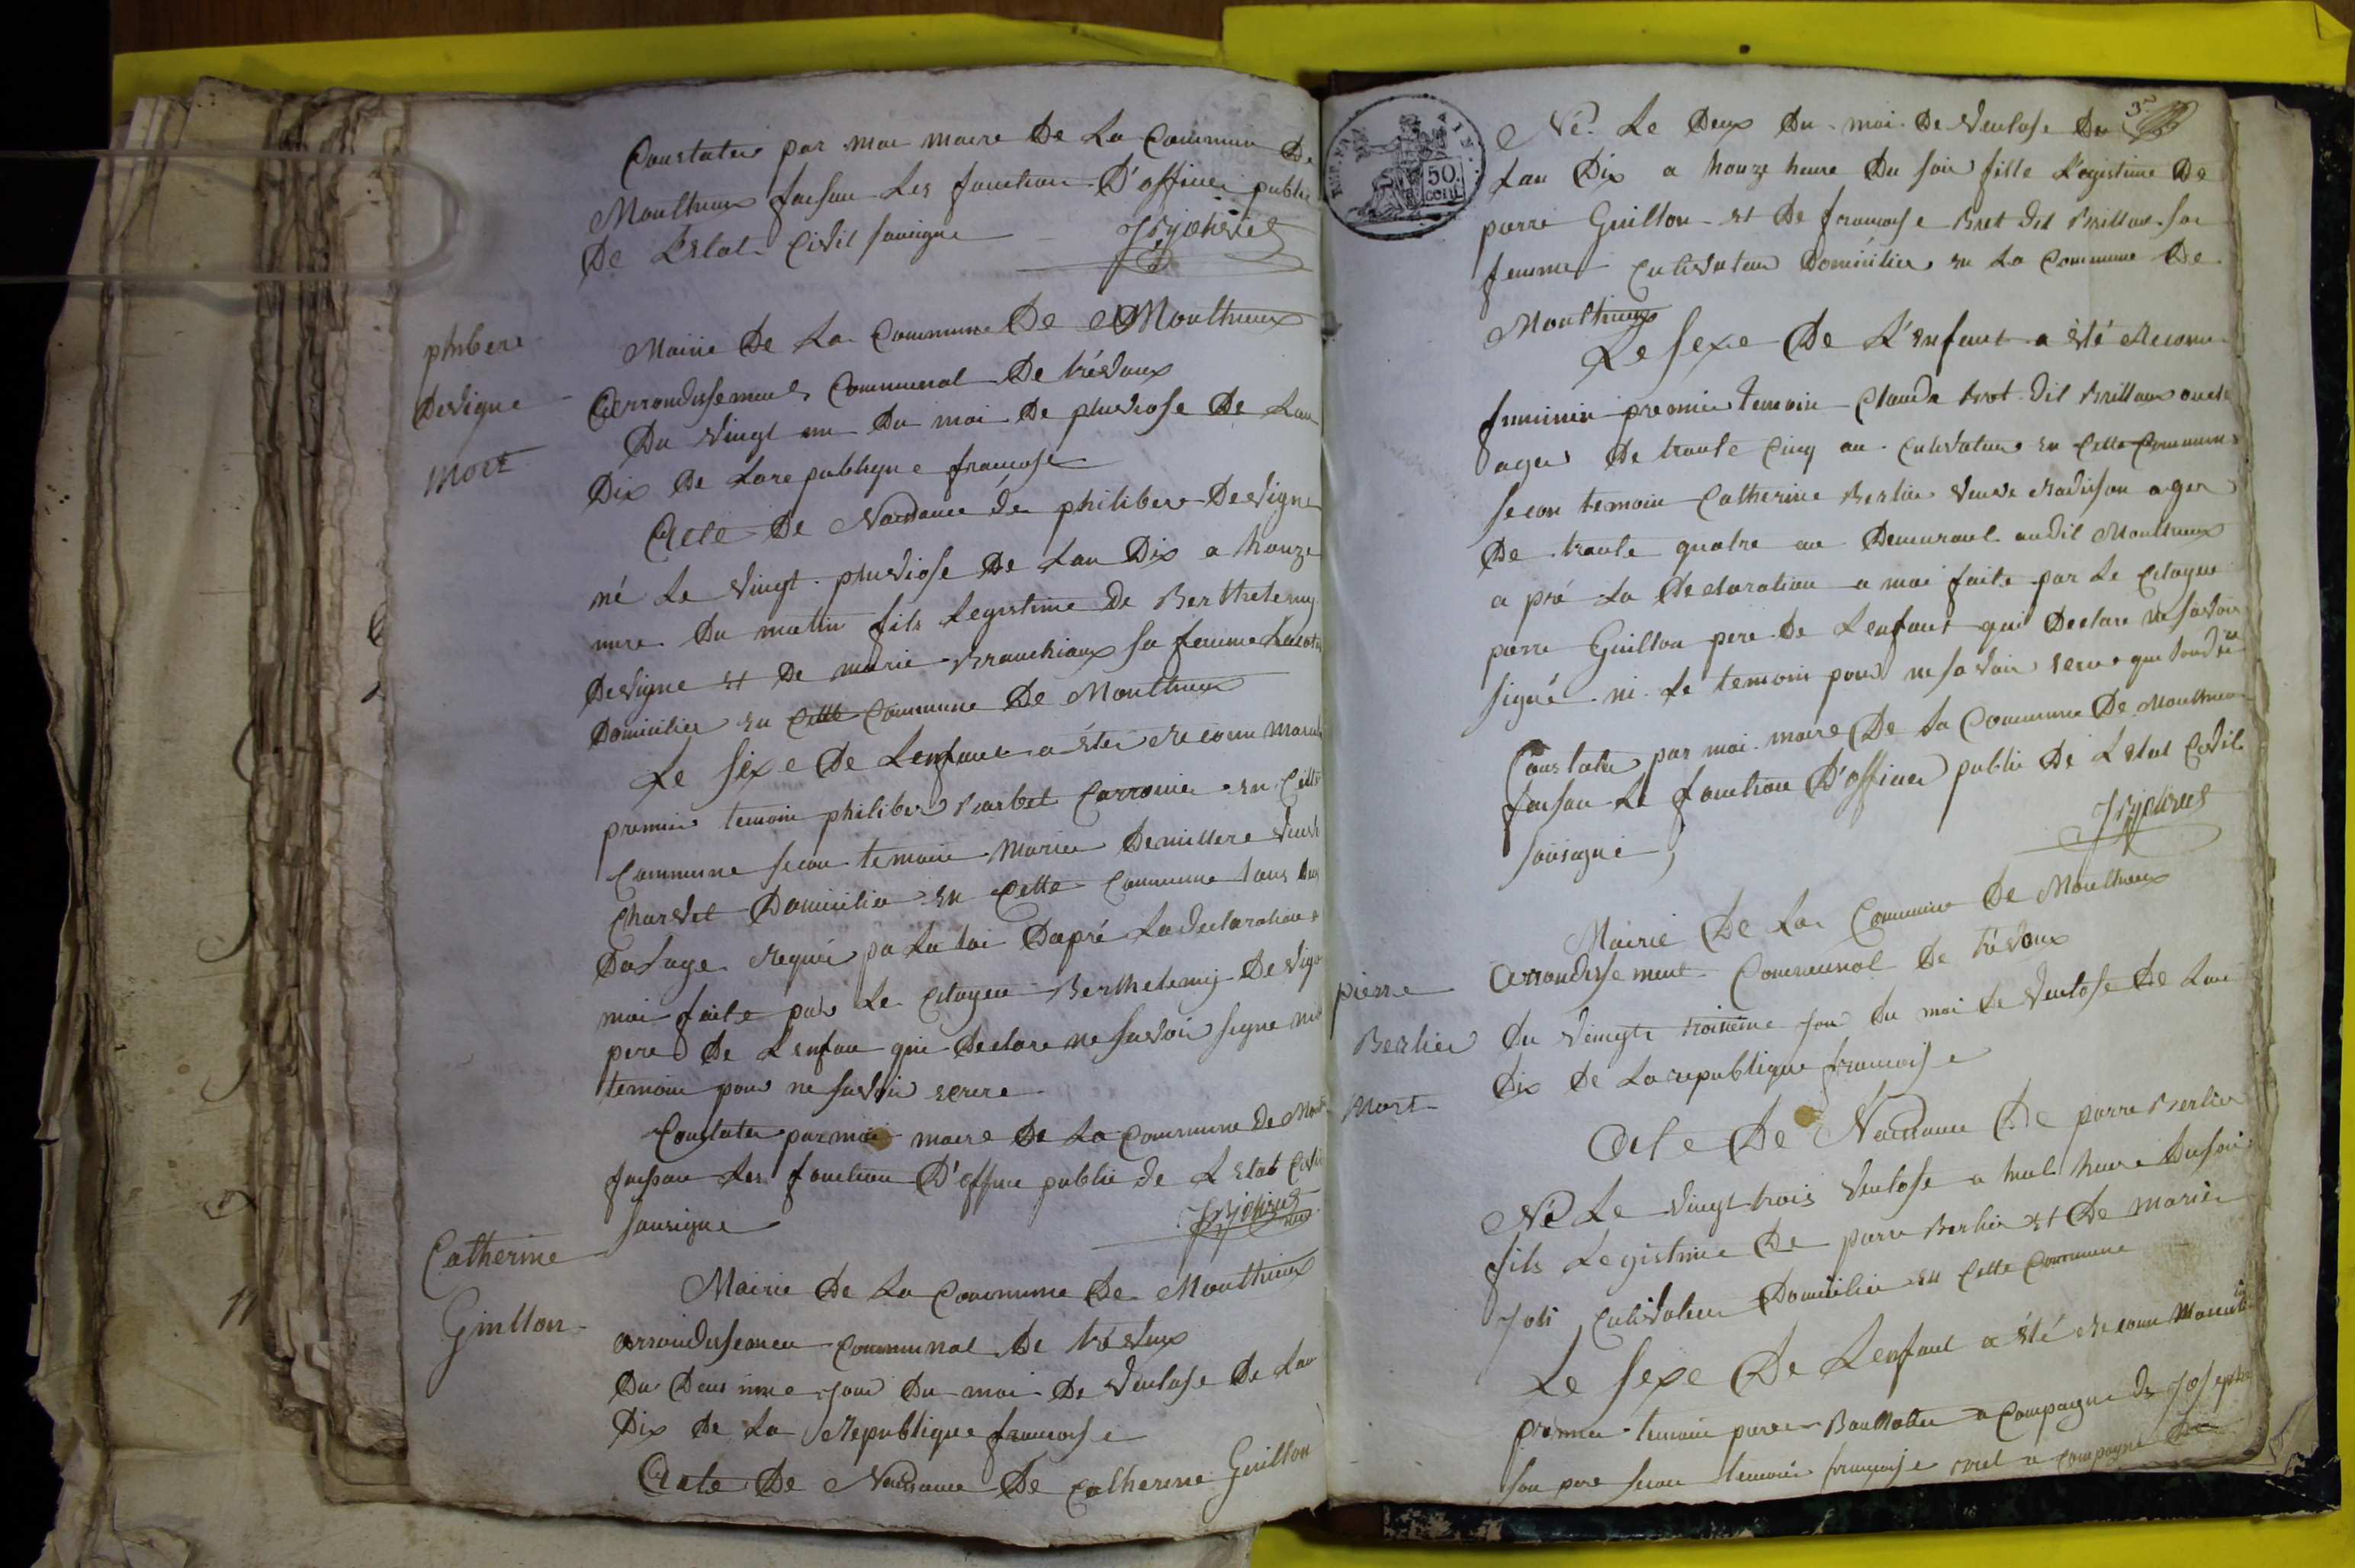 Constater par moi maire De La Commune De
Monthieux faisan Les fonction D'officier public
De L'Etat Civil sousigne
philibere
Devigne
Mort
Mairie De La Commune De Monthieux
Arrondissement Communal De trévoux
Du Vingt un Du moi De pluviose De Lan
Dix De La republique francose
Acte De Naissance de philibere Devigne
né Le Vingt pluviose De Lan Dix a honze
eure Du mattin fils Legistime De Berthelemy
Devigne et De marie Branchiaux sa femme
Domicilier en Cette Commune De Monthieux
Le sexe De Lenfant a éter reconu
premier temoin philiber Barbet Carronier en Cette
Commune secon temoin Marie Demillere Veuve
Charvet Domicilier en Cette Commune tous Deux
Dalage requi pa La loi Dapré La declaration a
moi faite par Le Citoyen Berthelemy Devigne
pere De Lenfan qui declare ne savoir signe ni
temoin pour ne savoir ecrire
Constater par moi maire De La Commune De
faisan Les fonction D'office public de L'Etat
sousigne
Catherine
Guillon
Mairie De La Commune De Monthieux
arrondissemen Communal De trévoux
Du Deusieme jour Du moi De Ventose De Lan
Dix De La Republique francoise
Acte De Naissance De Catherine Guillon
3
50
CENT
Né Le Deux Du moi De Ventose De
Lan Dix a honze heure Du soir fille Legistime De
pierre Guillon et De francoise Bret dit Brillan sa
femme Cultivateur Domicilier en La Commune De
Monthieux
Le sexe De L'enfant a été Reconu
feminin premier temoin Claude Brot dit Brillan oncle
ager De trante Cinq an Cultivateur en Cette Commune
secon temoin Catherine Berlier Veuve ager
De trante quatre an Demeurant audit Monthieux
a pré La Declaration a moi faite par Le Citoyen
pierre Guillon pere De Lenfant qui Declare ne savoir
signé ni Le temoin pour ne savoir
Constater par moi maire De La Commune De Monthieux
faisan Le fonction D'officier public De L'Etat Civil
sousigné
Mairie De La Commune De Monthieux
pierre
Berlier
Mort
Arrondissement Communal De trévoux
Du Vingt troisieme jour Du moi De Ventose De Lan
Dix De La republique francoise
Acte De Naissance De pierre Berlier
Né Le Vingt trois Ventose a huit heure Dusoir
fils Legistime De pierre Berlier et De Marie
Joli Cultivateur Domicilier en Cette Commune
Le sexe De Lenfant a été reconu Masculin
premier temoin pierre a Compagne De Joseph
son pere secon temoin francoise a compagne De